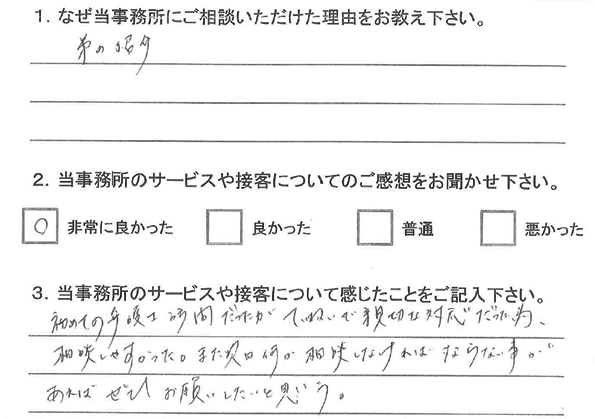 1. なぜ当事務所にご相談いただけた理由をお教え下さい。
弟の紹介
2. 当事務所のサービスや接客についてのご感想をお聞かせ下さい。
○ 非常に良かった 良かった 普通 悪かった
3. 当事務所のサービスや接客について感じたことをご記入下さい。
初めての弁護士訪問だったが ていねいで親切な対応だった為、
相談しやすかった。また次回何か相談しなければならない事が
あればぜひお願いしたいと思う。